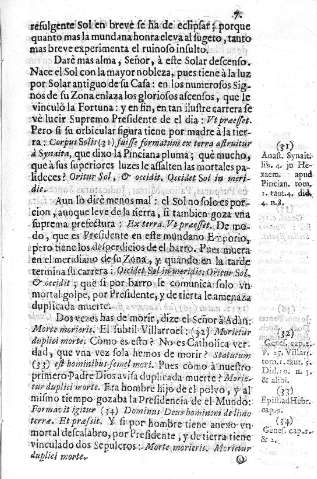 7.
resulgente Sol en breve se ha de eclipsar; porque
quanto mas la mundana honra eleva al sugeto, tanto
mas breve experimenta el ruinoso insulto.
Darè mas alma, Señor, à este Solar descenso.
Nace el Sol con la mayor nobleza, pues tiene à la luz
por Solar antiguo de su Casa: en los numerosos Sig-
nos de su Zona enlaza los gloriosos ascensos, que le
vinculò la Fortuna: y en fin, en tan ilustre carrera se
vè lucir Supremo Presidente de el dia: Vt præesset.
Pero si su orbicular figura tiene por madre à la tie-
rra: Corpus Solis (31) fuisse formatum ex terra asseruit
à Synaita, que dixo la Pinciana pluma; què mucho,
que à sus superiores luzes le assalten las mortales pa-
lideces? Oritur Sol, & occidit. Occidet Sol in meri-
die.
Aun lo dirè menos mal: el Sol no solo es por-
cion, aunque leve de la tierra, si tambien goza vna
suprema prefectura: Ex terra. Vt præesset. De mo-
do, que es Presidente en este mundano Emporio,
pero tiene los desperdicios de el barro. Pues muera
en el meridiano de su Zona, y quando en la tarde
termina su carrera: Occidet Sol in meridie: Oritur Sol,
& occidit; que si por barro se comunica solo vn
mortal golpe, por Presidente, y de tierra le amenaza
duplicada muerte.
Dos vezes has de morir, dize el Señor à Adàn:
Morte morieris. El subtil Villarroel: (32) Morietur
duplici morte. Còmo es esto? No es Catholica ver-
dad, que vna vez sola hemos de morir? Statutum
(33) est hominibus semel mori. Pues còmo à nuestro
primero Padre Dios avisa duplicada muerte? Morie-
tur duplici morte. Era hombre hijo de el polvo, y al
mismo tiempo gozaba la Presidencia de el Mundo:
Formavit igitur (34) Dominus Deus hominem de limo
terræ. Et præsit. Y si por hombre tiene anexo vn
mortal descalabro, por Presidente, y de tierra tiene
vinculado dos Sepulcros: Morte morieris. Morietur
duplici morte.
(31)
Anast. Synait.
lib. 4. in He-
xaem. apud
Pincian. tom.
1. taut. 4. did.
4. n. 8.
(32)
Genes. cap. 2.
V. 17. Villarr.
tom. 1. taut. 5.
Did. 10. n. 5.
& alibi.
(33)
Epist. ad Hebr.
cap. 9.
(34)
Genes. cap. 1.
& 2.